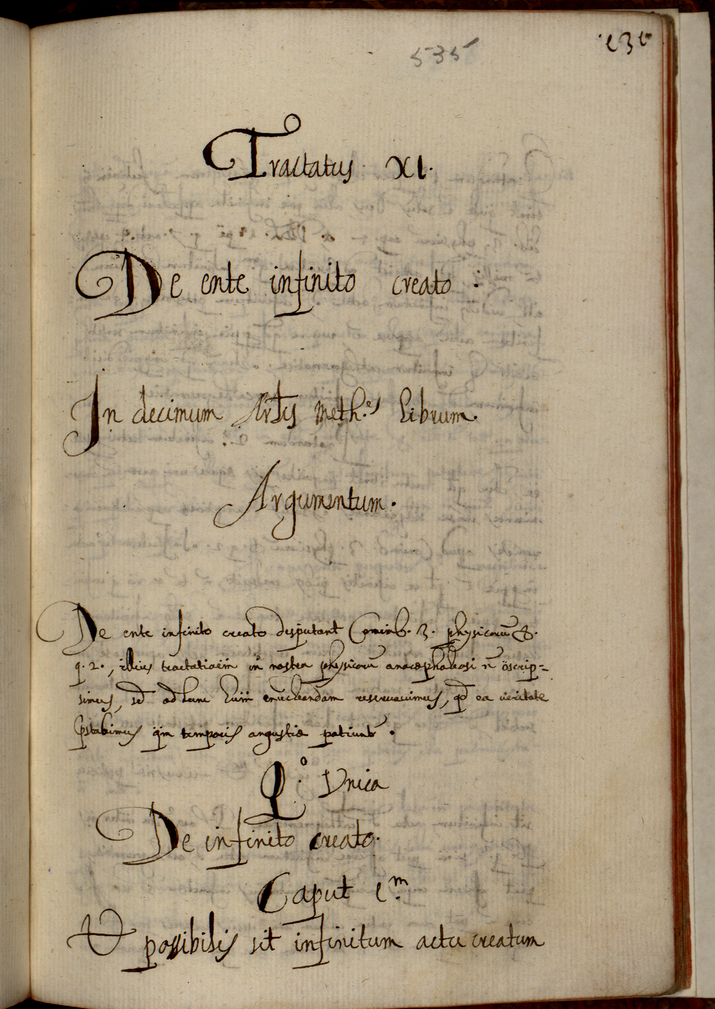 535
Tractatus XI.
De ente infinito creato :
In decimum Artis Meth.es librum.
Argumentum.
De ente infinito creato disputant Conimb. 3. physicorũ 8.
q. 2., illius tractationem in nostra physicorũ anacephaleosi nõ
simus, sed ad hunc eruciendam reservavimus, qd̃ ea veritate
pstabimus q̃m temporis angustiæ patiunt.
Q.o Vnica
De infinito creato.
Caput 1.m
possibilis sit infinitum actu creatum